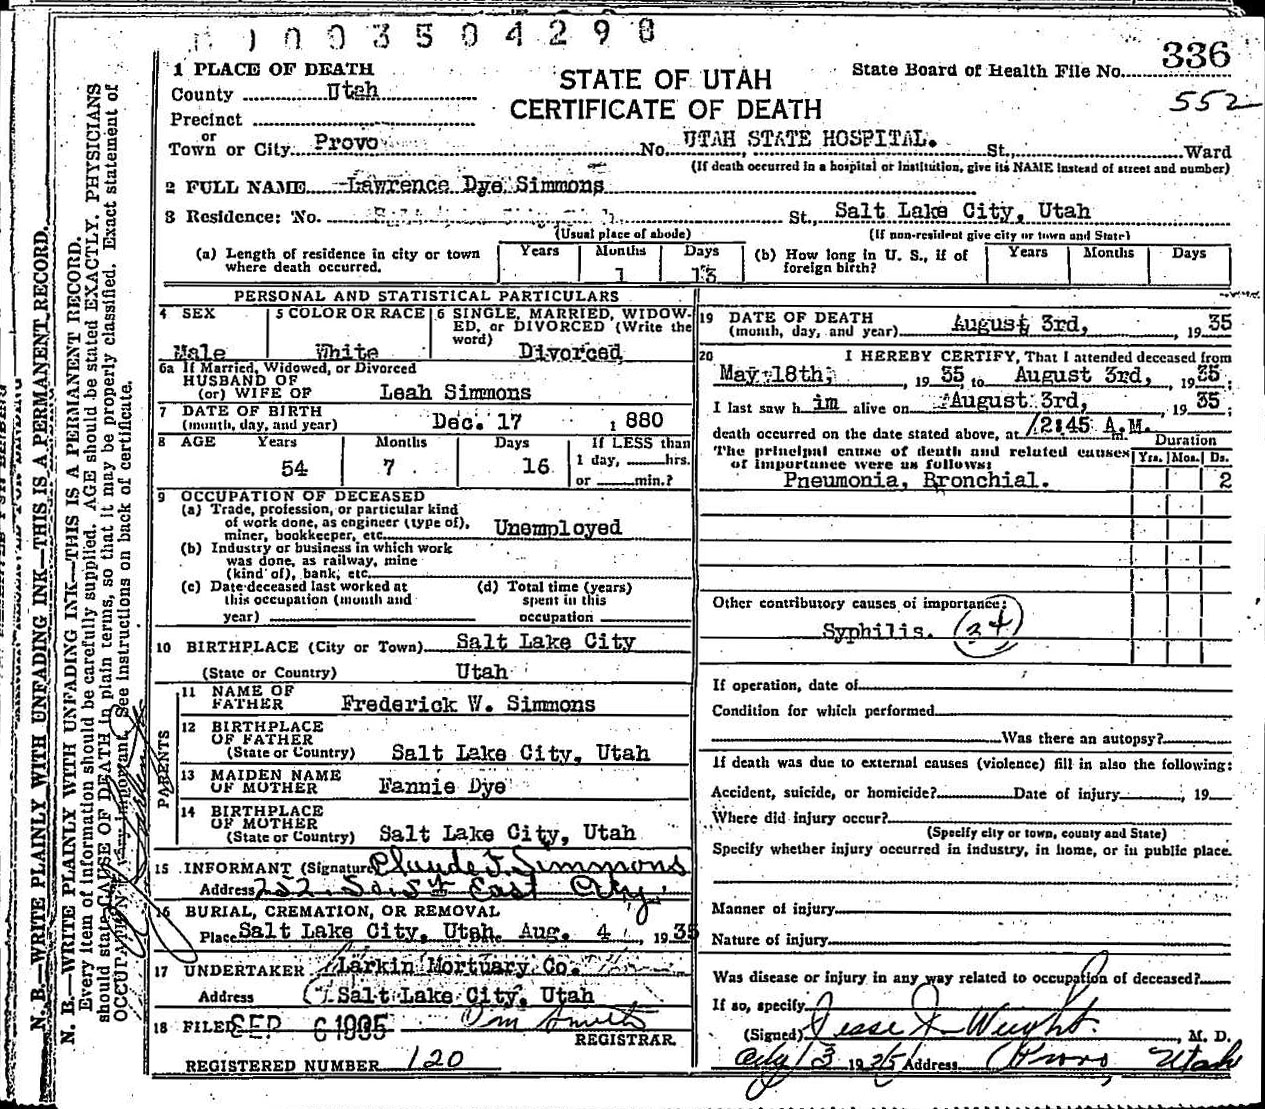 0 0 3 5 0 4 2 9 8
336
State Board of Health File No.
552
STATE OF UTAH
CERTIFICATE OF DEATH
1 PLACE OF DEATH
County Utah
Precinct
or
Town or City Provo No. UTAH STATE HOSPITAL. St., Ward
(If death occurred in a hospital or institution, give its NAME instead of street and number)
2 FULL NAME Lawrence Dye Simmons
3 Residence: No. St., Salt Lake City, Utah
(Usual place of abode) (If non-resident give city or town and State)
(a) Length of residence in city or town where death occurred. Years Months 1 Days 13
(b) How long in U. S., if of foreign birth? Years Months Days
PERSONAL AND STATISTICAL PARTICULARS
4 SEX Male
5 COLOR OR RACE White
6 SINGLE, MARRIED, WIDOWED, or DIVORCED (Write the word) Divorced
6a If Married, Widowed, or Divorced
HUSBAND OF
(or) WIFE OF Leah Simmons
7 DATE OF BIRTH
(month, day, and year) Dec. 17 1 880
8 AGE Years 54 Months 7 Days 16 If LESS than 1 day, hrs. or min.?
9 OCCUPATION OF DECEASED
(a) Trade, profession, or particular kind
of work done, as engineer (type of),
miner, bookkeeper, etc. Unemployed
(b) Industry or business in which work
was done, as railway, mine
(kind of), bank, etc.
(c) Date deceased last worked at
this occupation (month and
year)
(d) Total time (years)
spent in this
occupation
10 BIRTHPLACE (City or Town) Salt Lake City
(State or Country) Utah
PARENTS
11 NAME OF
FATHER Frederick W. Simmons
12 BIRTHPLACE
OF FATHER
(State or Country) Salt Lake City, Utah
13 MAIDEN NAME
OF MOTHER Fannie Dye
14 BIRTHPLACE
OF MOTHER
(State or Country) Salt Lake City, Utah
15 INFORMANT (Signature) Claude F. Simmons
Address 252 So. 1st East City
16 BURIAL, CREMATION, OR REMOVAL
Place Salt Lake City, Utah. Aug. 4, 1935
17 UNDERTAKER Larkin Mortuary Co.
Address Salt Lake City, Utah
18 FILED SEP 6 1935
REGISTRAR
REGISTERED NUMBER 120
19 DATE OF DEATH
(month, day, and year) August 3rd, 19 35
20 I HEREBY CERTIFY, That I attended deceased from
May 18th, 19 35 to August 3rd, 19 35;
I last saw h im alive on August 3rd, 19 35;
death occurred on the date stated above, at 12:45 A.M.
Duration
The principal cause of death and related causes Yrs. Mos. Ds.
of importance were as follows:
Pneumonia, Bronchial. 2
Other contributory causes of importance:
Syphilis. (34)
If operation, date of
Condition for which performed
Was there an autopsy?
If death was due to external causes (violence) fill in also the following:
Accident, suicide, or homicide? Date of injury , 19
Where did injury occur?
(Specify city or town, county and State)
Specify whether injury occurred in industry, in home, or in public place.
Manner of injury
Nature of injury
Was disease or injury in any way related to occupation of deceased?
If so, specify
(Signed) Jesse J. Weight, M. D.
3 1935 Address Provo, Utah
N. B.—WRITE PLAINLY WITH UNFADING INK—THIS IS A PERMANENT RECORD.
N. B.—WRITE PLAINLY WITH UNFADING INK—THIS IS A PERMANENT RECORD.
Every item of information should be carefully supplied. AGE should be stated EXACTLY. PHYSICIANS
should state CAUSE OF DEATH in plain terms, so that it may be properly classified. Exact statement of
OCCUPATION is very important. See instructions on back of certificate.